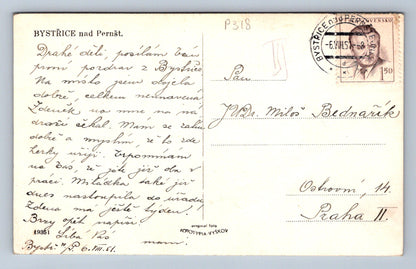 P318
BYSTŘICE nad Pernšt.
Drahé děti, posílám Vám
první pozdrav z Bystřice.
Na místo jsem dojela
dobře, celkem neunavená,
Zdeněk už mne na ná-
draží čekal. Mám se zatím
dobře a myslím, že to zde
hezky užiji. Vzpomínám
na Vás, že jste již dnes v
práci. Miladka také již
dnes nastoupila do úřadu,
Zdena má ještě týden.
Brzy opět napíši.
Líbá Vás
mami.
Bystř. n/P. 6.VIII.51.
19951
original foto
FOTOTYPIA-VYŠKOV
BYSTŘICE n. PERNŠT
-6.VIII.51
1.50
Paní
JUDr. Miloš Bednařík
Ostrovní, 14.
Praha II.